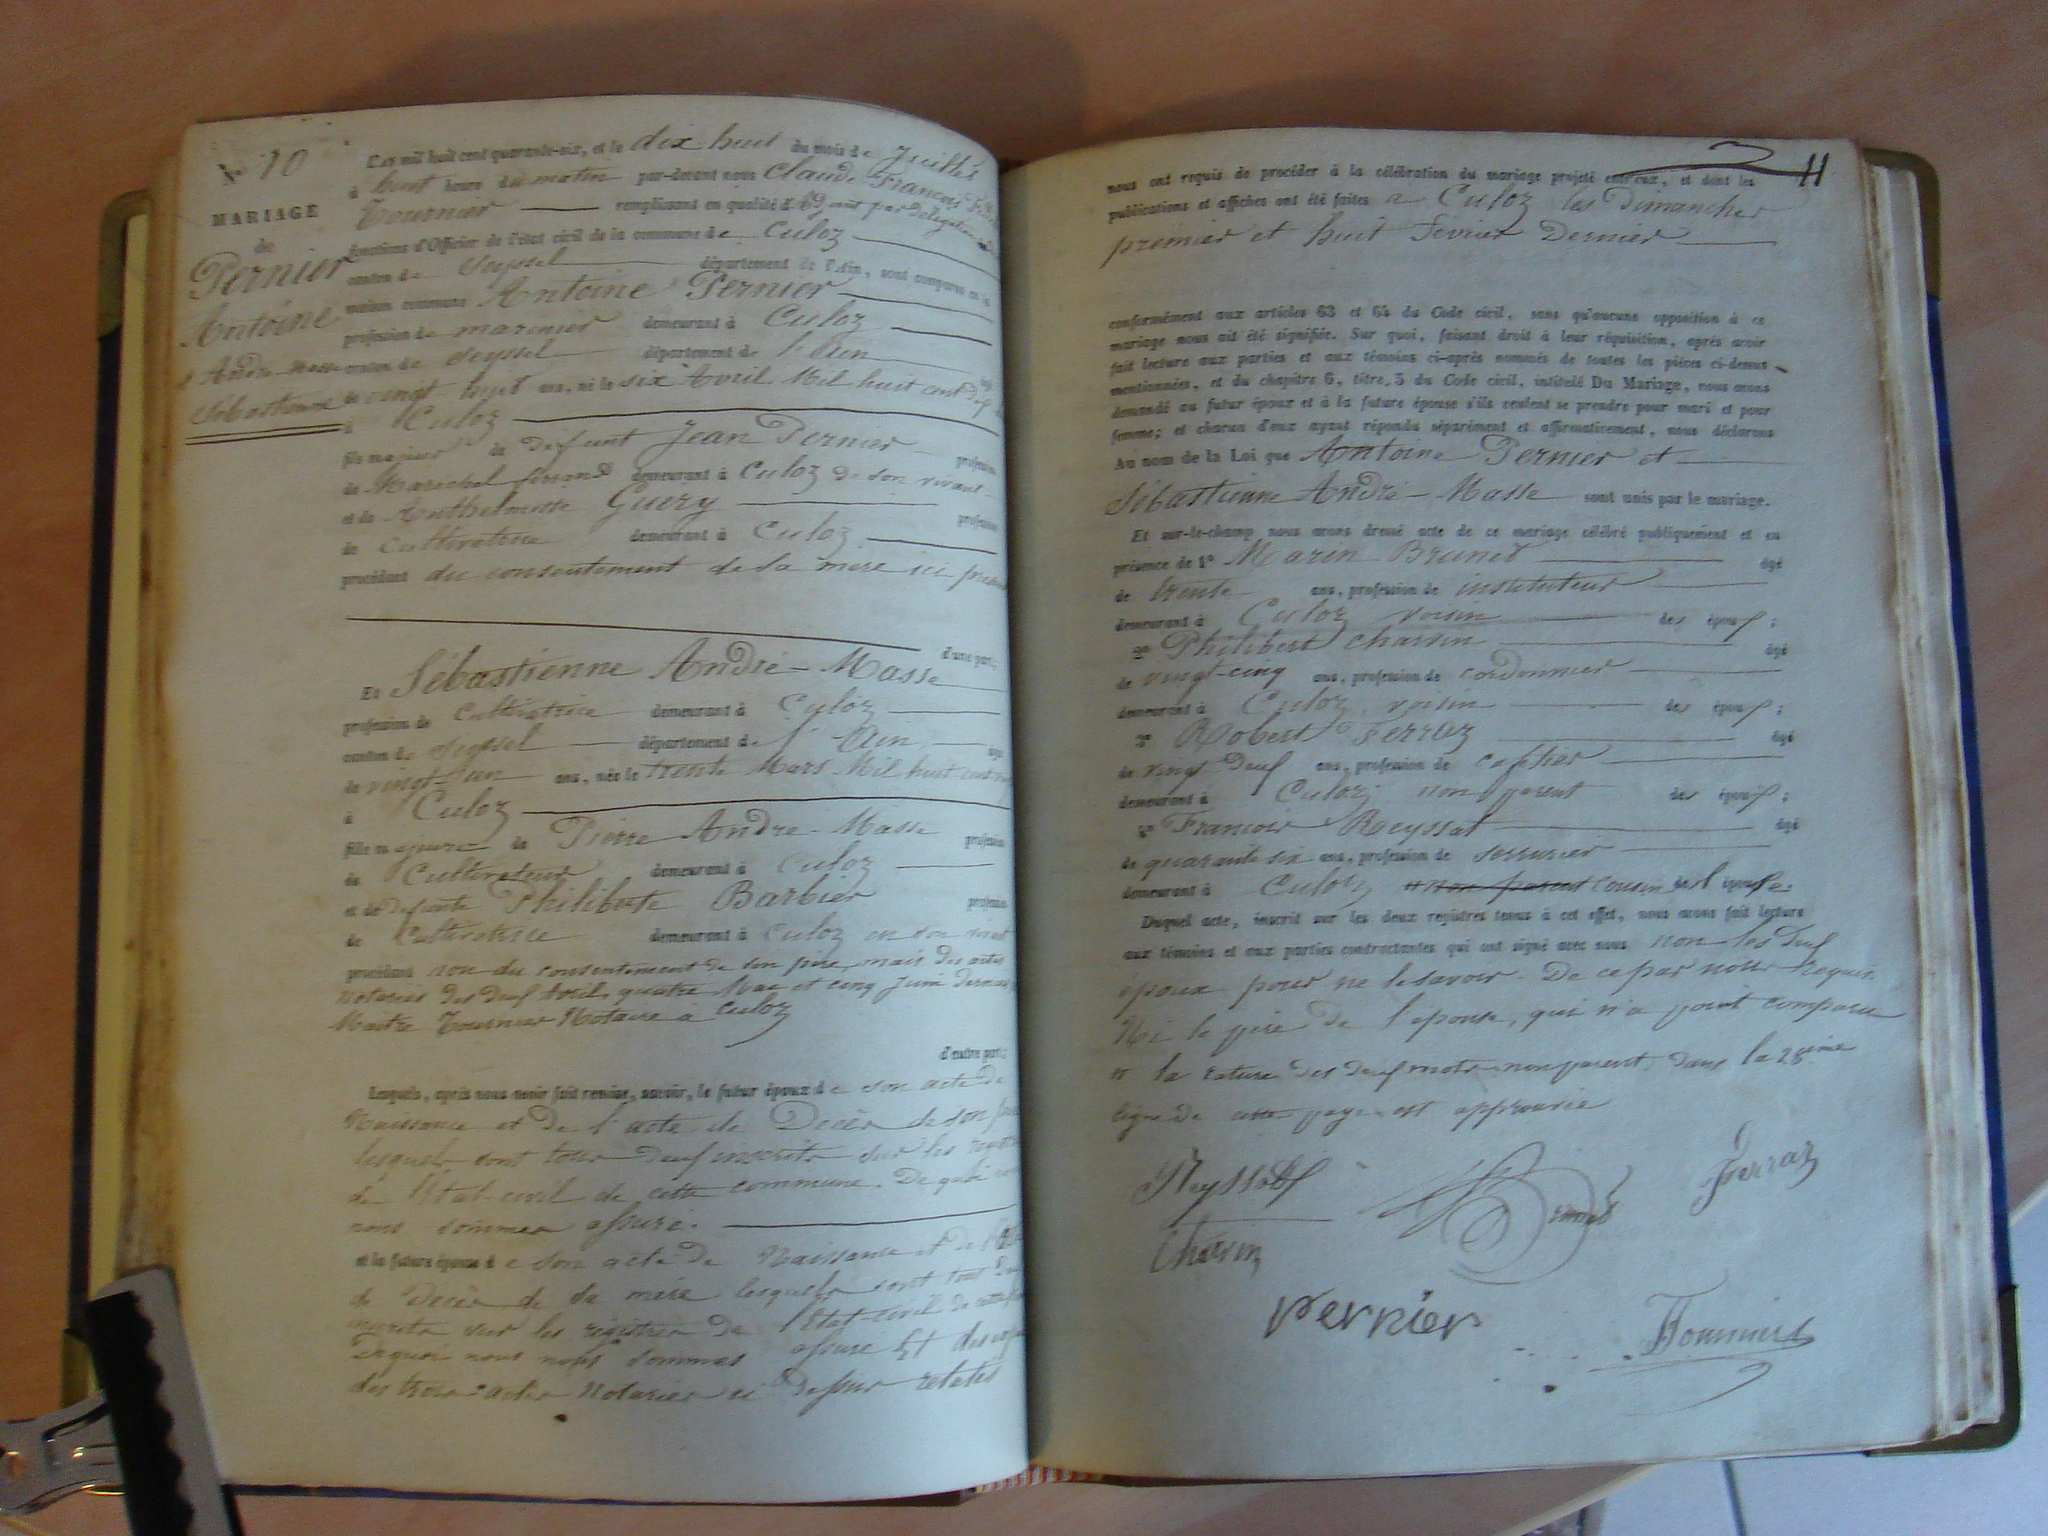 N° 10
MARIAGE
de
Pernier
Antoine
et André-Masse
Sébastienne
L'an mil huit cent quarante-six, et le dix huit du mois de Juillet
à huit heures du matin par-devant nous Claude François
Tournier remplissant en qualité d' par délégation
fonctions d'Officier de l'état civil de la commune de Culoz
canton de Seyssel département de l'Ain, sont comparus en la
maison commune Antoine Pernier
profession de marinier demeurant à Culoz
canton de Seyssel département de l'Ain
de vingt-sept ans, né le six Avril Mil huit cent dix
à Culoz
fils majeur de défunt Jean Pernier profession
de Maréchal ferrand demeurant à Culoz de son vivant
et de Anthelmette Guery profession
de cultivatrice demeurant à Culoz
procédant du consentement de sa mère ici présente
d'une part;
Et Sébastienne André-Masse
profession de cultivatrice demeurant à Culoz
canton de Seyssel département de l'Ain âgée
de vingt ans, née le trente Mars Mil huit cent
à Culoz
fille majeure de Pierre André-Masse profession
de Cultivateur demeurant à Culoz
et de défunte Philiberte Barbier profession
de Cultivatrice demeurant à Culoz en son vivant
procédant non du consentement de son père, mais des actes
notariés des deux Avril, quatre Mai et cinq Juin derniers
Maître Tournier Notaire à Culoz
d'autre part;
Lesquels, après nous avoir fait remise, savoir, le futur époux de son acte de
Naissance et de l'acte de Décès de son père
lesquels sont tous deux inscrits sur les registres
de l'Etat-civil de cette commune. De quoi nous
nous sommes assuré.
et la future épouse de son acte de Naissance et de l'acte
de Décès de sa mère lesquels sont tous deux
inscrits sur les registres de l'Etat-civil de cette
De quoi nous nous sommes assuré Et des
des trois actes Notariés ci dessus relatés
11
nous ont requis de procéder à la célébration du mariage projeté entr'eux, et dont les
publications et affiches ont été faites à Culoz les Dimanches
premier et huit Février Dernier
conformément aux articles 63 et 64 du Code civil, sans qu'aucune opposition à ce
mariage nous ait été signifiée. Sur quoi, faisant droit à leur réquisition, après avoir
fait lecture aux parties et aux témoins ci-après nommés de toutes les pièces ci-dessus
mentionnées, et du chapitre 6, titre 5 du Code civil, intitulé Du Mariage, nous avons
demandé au futur époux et à la future épouse s'ils veulent se prendre pour mari et pour
femme; et chacun d'eux ayant répondu séparément et affirmativement, nous déclarons
Au nom de la Loi que Antoine Pernier et
Sébastienne André-Masse sont unis par le mariage.
Et sur-le-champ nous avons dressé acte de ce mariage célébré publiquement et en
présence de 1° Marin Brunet âgé
de trente ans, profession de instituteur
demeurant à Culoz voisin des époux;
2° Philibert Charvin âgé
de vingt-cinq ans, profession de cordonnier
demeurant à Culoz, voisin des époux;
3° Robert Ferraz âgé
de vingt-deux ans, profession de cafetier
demeurant à Culoz, non parent des époux;
4° François Reyssat âgé
de quarante six ans, profession de serrurier
demeurant à Culoz, non parent cousin de l'épouse.
Duquel acte, inscrit sur les deux registres tenus à cet effet, nous avons fait lecture
aux témoins et aux parties contractantes qui ont signé avec nous non les deux
époux pour ne le savoir. De ce par nous requis.
Ni le père de l'épouse, qui n'a point comparu
la rature des deux mots non parent, dans la 28ème
ligne de cette page est approuvée
Reyssat
Brunet
Ferraz
Charvin
Pernier
Tournier